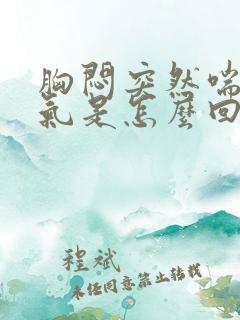 胸悶突然喘
氣是怎麼回
程斌
未任同意禁止轉載